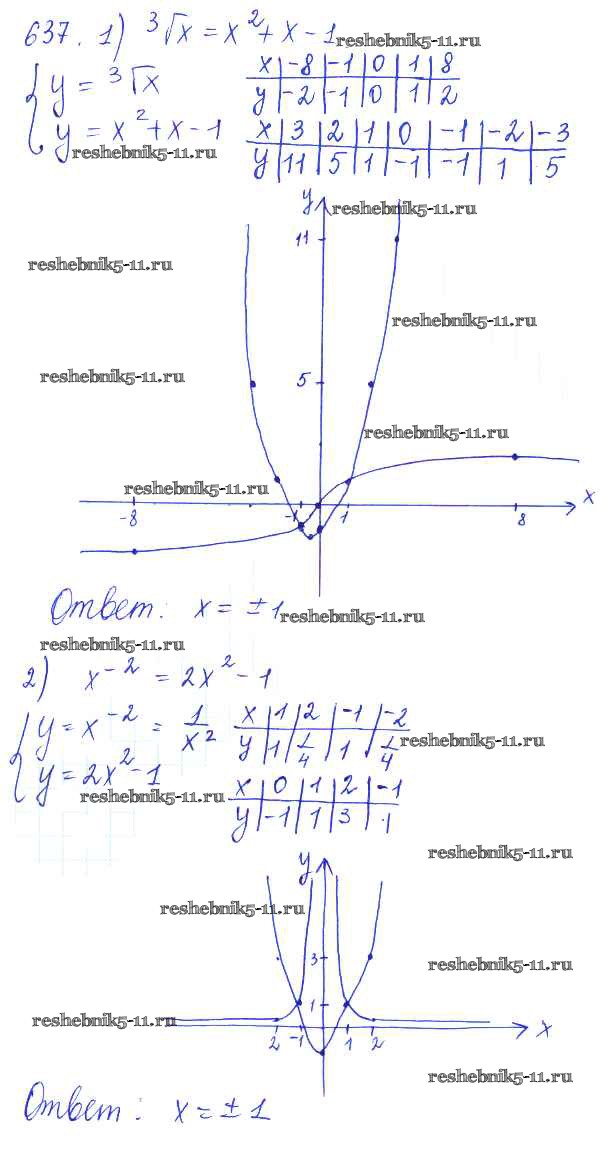 637. 1) ³√x = x² + x - 1 reshebnik5-11.ru
{ y = ³√x
x | -8 | -1 | 0 | 1 | 8
y | -2 | -1 | 0 | 1 | 2
y = x² + x - 1 reshebnik5-11.ru
x | 3 | 2 | 1 | 0 | -1 | -2 | -3
y | 11 | 5 | 1 | -1 | -1 | 1 | 5
y reshebnik5-11.ru
11
reshebnik5-11.ru
reshebnik5-11.ru
reshebnik5-11.ru 5
reshebnik5-11.ru
reshebnik5-11.ru x
-8 -1 1 8
Ответ: x = ± 1 reshebnik5-11.ru
reshebnik5-11.ru
2) x⁻² = 2x² - 1
{ y = x⁻² = 1/x²
x | 1 | 2 | -1 | -2
y | 1 | 1/4 | 1 | 1/4 reshebnik5-11.ru
y = 2x² - 1 reshebnik5-11.ru
x | 0 | 1 | 2 | -1
y | -1 | 1 | 3 | 1
reshebnik5-11.ru
y
reshebnik5-11.ru
3 reshebnik5-11.ru
1
reshebnik5-11.ru x
2 -1 1 2
reshebnik5-11.ru
Ответ: x = ± 1